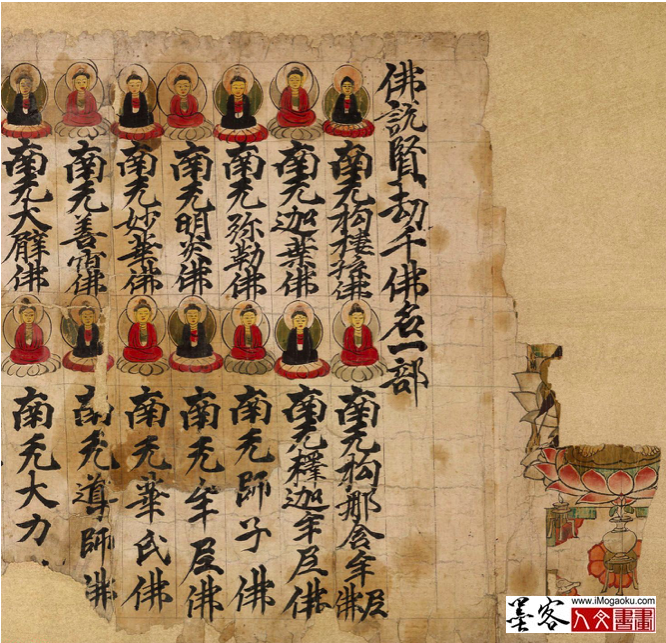 佛說賢劫千佛名一部
南无拘樓孫佛
南无拘那含牟尼佛
南无迦葉佛
南无釋迦牟尼佛
南无弥勒佛
南无師子佛
南无明炎佛
南无牟尼佛
南无妙華佛
南无華氏佛
南无善宿佛
南无導師佛
南无大臂佛
南无大力
墨客
www.iMogaoku.com
人文書畫